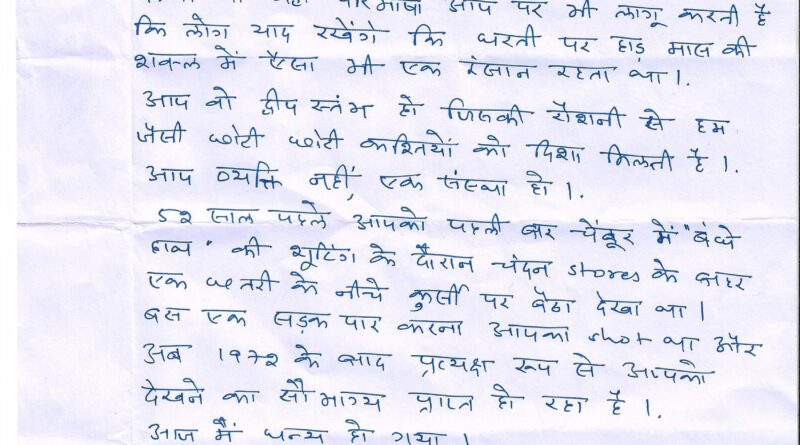 परिभाषा आप पर भी लागू करती है
कि लोग याद रखेंगे कि धरती पर हाड़ मांस की
शक्ल में ऐसा भी एक इंसान रहता था।
आप वो द्वीप स्तंभ हो जिसकी रौशनी से हम
जैसी छोटी छोटी कश्तियों को दिशा मिलती है।
आप व्यक्ति नहीं, एक संस्था हो।
52 साल पहले आपको पहली बार चेंबूर में "बंधे
हाथ" की शूटिंग के दौरान चंदन stores के बाहर
एक छतरी के नीचे कुर्सी पर बैठा देखा था।
बस एक सड़क पार करना आपका shot था और
अब 1972 के बाद प्रत्यक्ष रूप से आपको
देखने का सौभाग्य प्राप्त हो रहा है।
आज मैं धन्य हो गया।